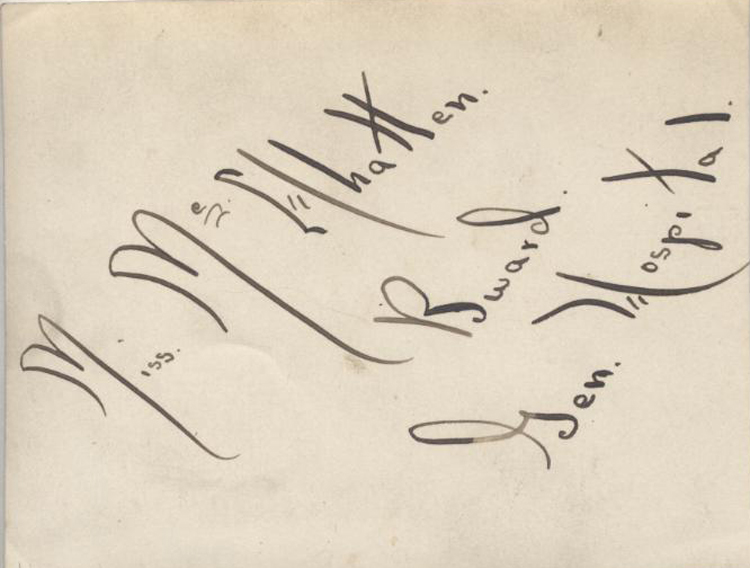 Miss. McWhatten.
B ward.
Gen. Hospital.